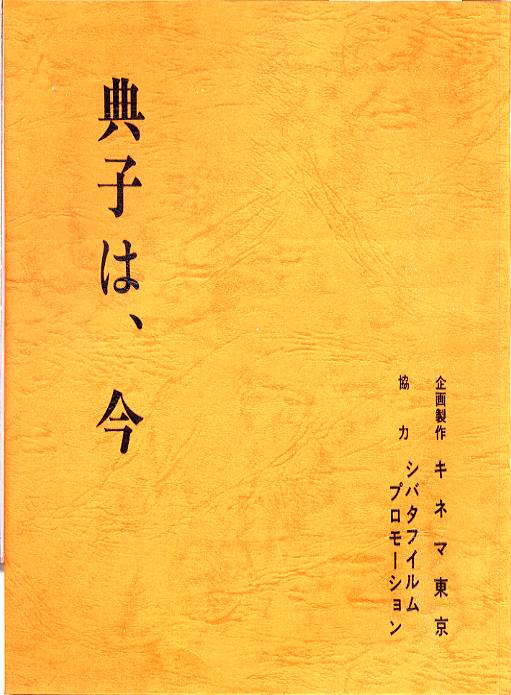 典子は、今
企画製作 キネマ東京
協力 シバタフイルム
プロモーション